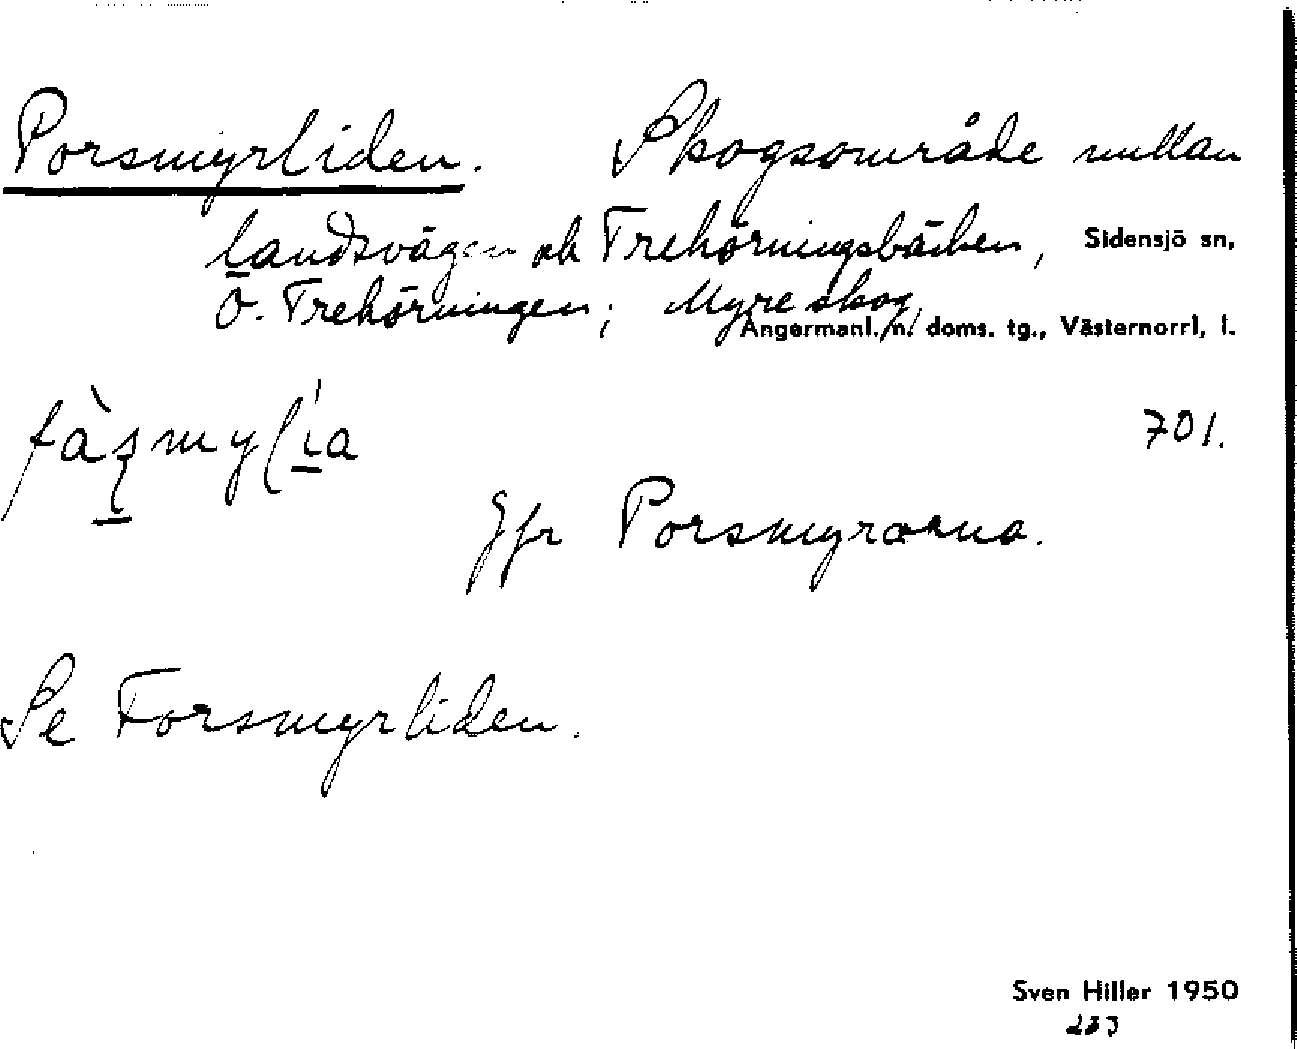 Porsmyrliden. Skogsområde mellan
landsvägen ok Trehörningsbäcken, Sidensjö sn,
Ö. Trehörningen; Myre skog,
Ångermanl. n. doms. tg., Västernorrl, l.
701.
Jfr Porsmyrarna.
Se Forsmyrliden.
Sven Hiller 1950
233